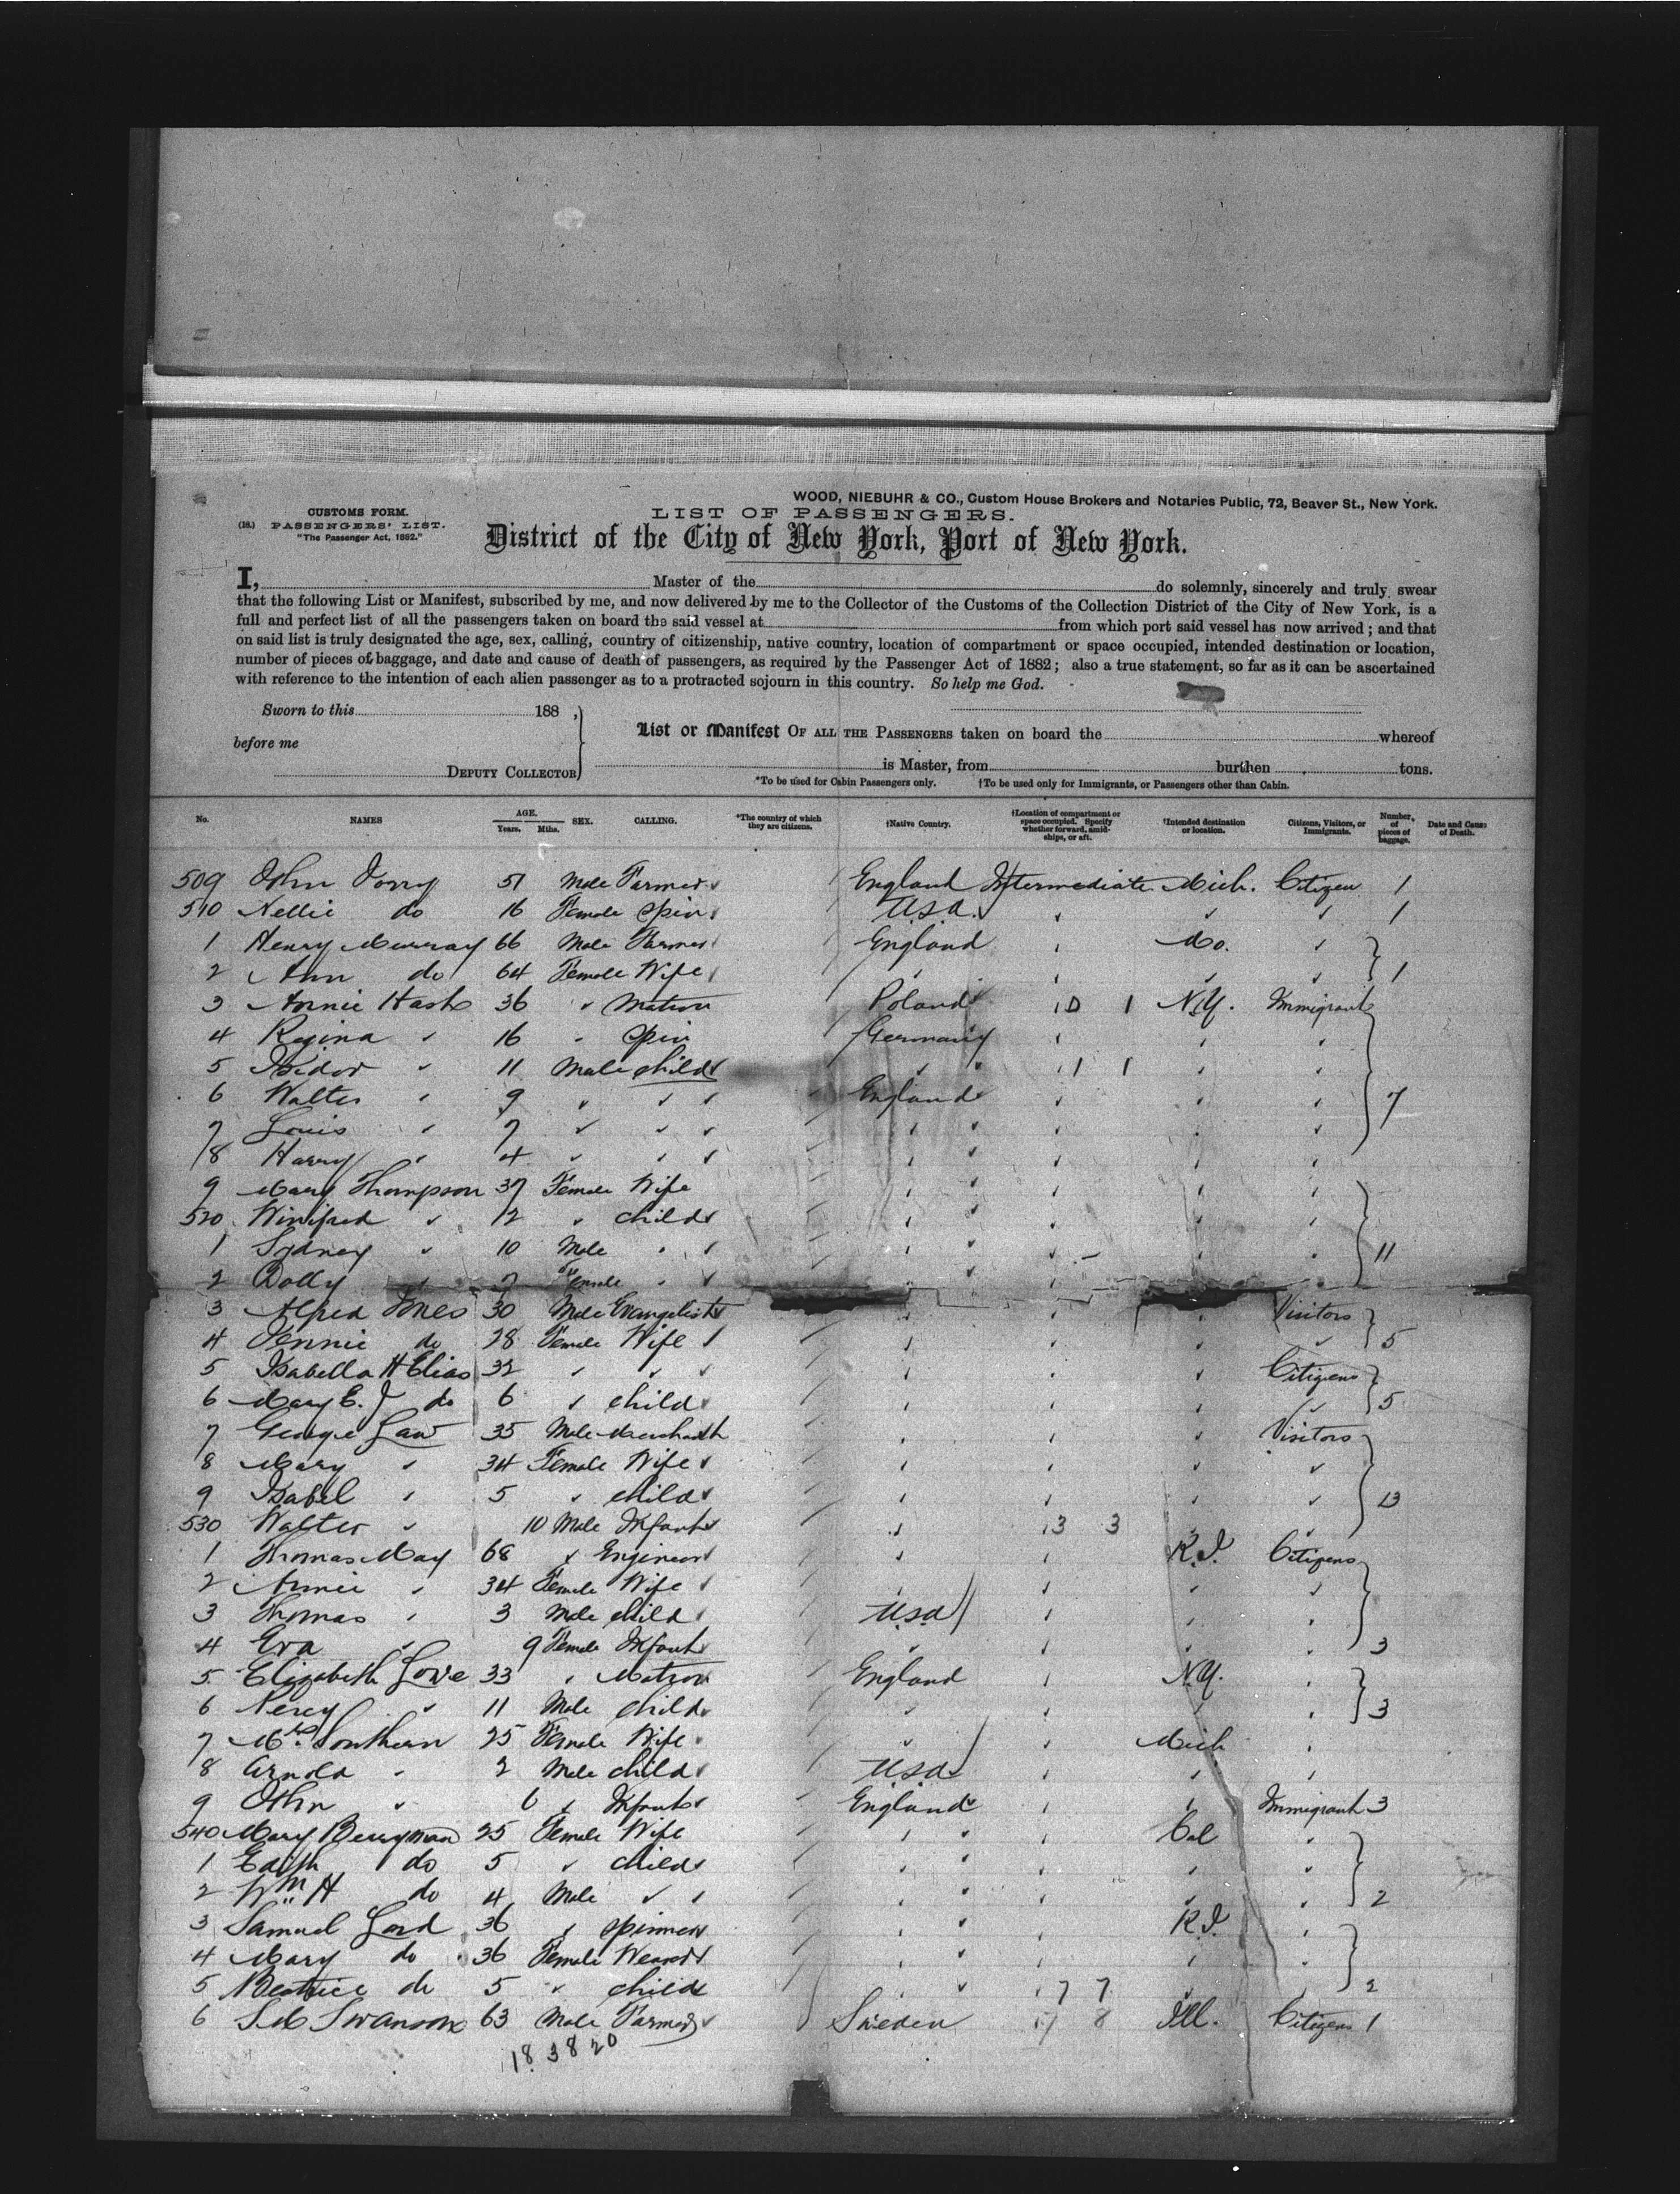 WOOD, NIEBUHR & CO., Custom House Brokers and Notaries Public, 72, Beaver St., New York.
CUSTOMS FORM.
LIST OF PASSENGERS.
(18.) PASSENGERS' LIST.
"The Passenger Act, 1882."
District of the City of New York, Port of New York.
I, Master of the do solemnly, sincerely and truly swear
that the following List or Manifest, subscribed by me, and now delivered by me to the Collector of the Customs of the Collection District of the City of New York, is a
full and perfect list of all the passengers taken on board the said vessel at from which port said vessel has now arrived ; and that
on said list is truly designated the age, sex, calling, country of citizenship, native country, location of compartment or space occupied, intended destination or location,
number of pieces of baggage, and date and cause of death of passengers, as required by the Passenger Act of 1882 ; also a true statement, so far as it can be ascertained
with reference to the intention of each alien passenger as to a protracted sojourn in this country. So help me God.
Sworn to this 188 ,
before me
DEPUTY COLLECTOR
List or Manifest OF ALL THE PASSENGERS taken on board the whereof
is Master, from burthen tons.
*To be used for Cabin Passengers only. †To be used only for Immigrants, or Passengers other than Cabin.
No. NAMES AGE. Years. Mths. SEX. CALLING. *The country of which they are citizens. †Native Country. †Location of compartment or space occupied. Specify whether forward, amidships, or aft. †Intended destination or location. Citizens, Visitors, or Immigrants. Number of pieces of baggage. Date and Cause of Death.
509 John 51 Male Farmer England Intermediate Mich. Citizen 1
510 Nellie do 16 Female Spin U.S.A. 1
1 Henry Murray 66 Male Farmer England Mo.
2 Ann do 64 Female Wife 1
3 Annie Hash 36 Matron Poland 1 N.Y. Immigrant
4 Regina 16 Spin Germany
5 Isidor 11 Male child 1 1
6 Walter 9 England 7
7 Louis 7
8 Harry 4
9 Mary Thompson 37 Female Wife
520 Winifred 12 child
1 Sydney 10 Male 11
2 Dolly 7 Female
3 Alfred Jones 30 Male Evangelist Visitors
4 Jennie do 28 Female Wife 5
5 Isabella H Elias 32 Citizens
6 Mary E. J do 6 child 5
7 George Law 35 Male Merchant Visitors
8 Mary 34 Female Wife
9 Isabel 5 child 13
530 Walter 10 Male Infant 3 3
1 Thomas May 68 Engineer R.I. Citizens
2 Annie 34 Female Wife
3 Thomas 3 Male child U.S.A
4 Eva 9 Female Infant 3
5 Elizabeth Love 33 Matron England N.Y.
6 Percy 11 Male child 3
7 Mrs Southern 25 Female Wife Mich
8 Arnold 2 Male child U.S.A
9 John 6 Infant England Immigrant 3
540 Mary Berryman 25 Female Wife Cal
1 Edith do 5 child
2 Wm H do 4 Male 2
3 Samuel Lord 36 Spinner R.I.
4 Mary do 36 Female Weaver
5 Beatrice do 5 child 7 7 2
6 Swanson 63 Male Farmer Sweden 8 Ill. Citizen 1
18 38 20